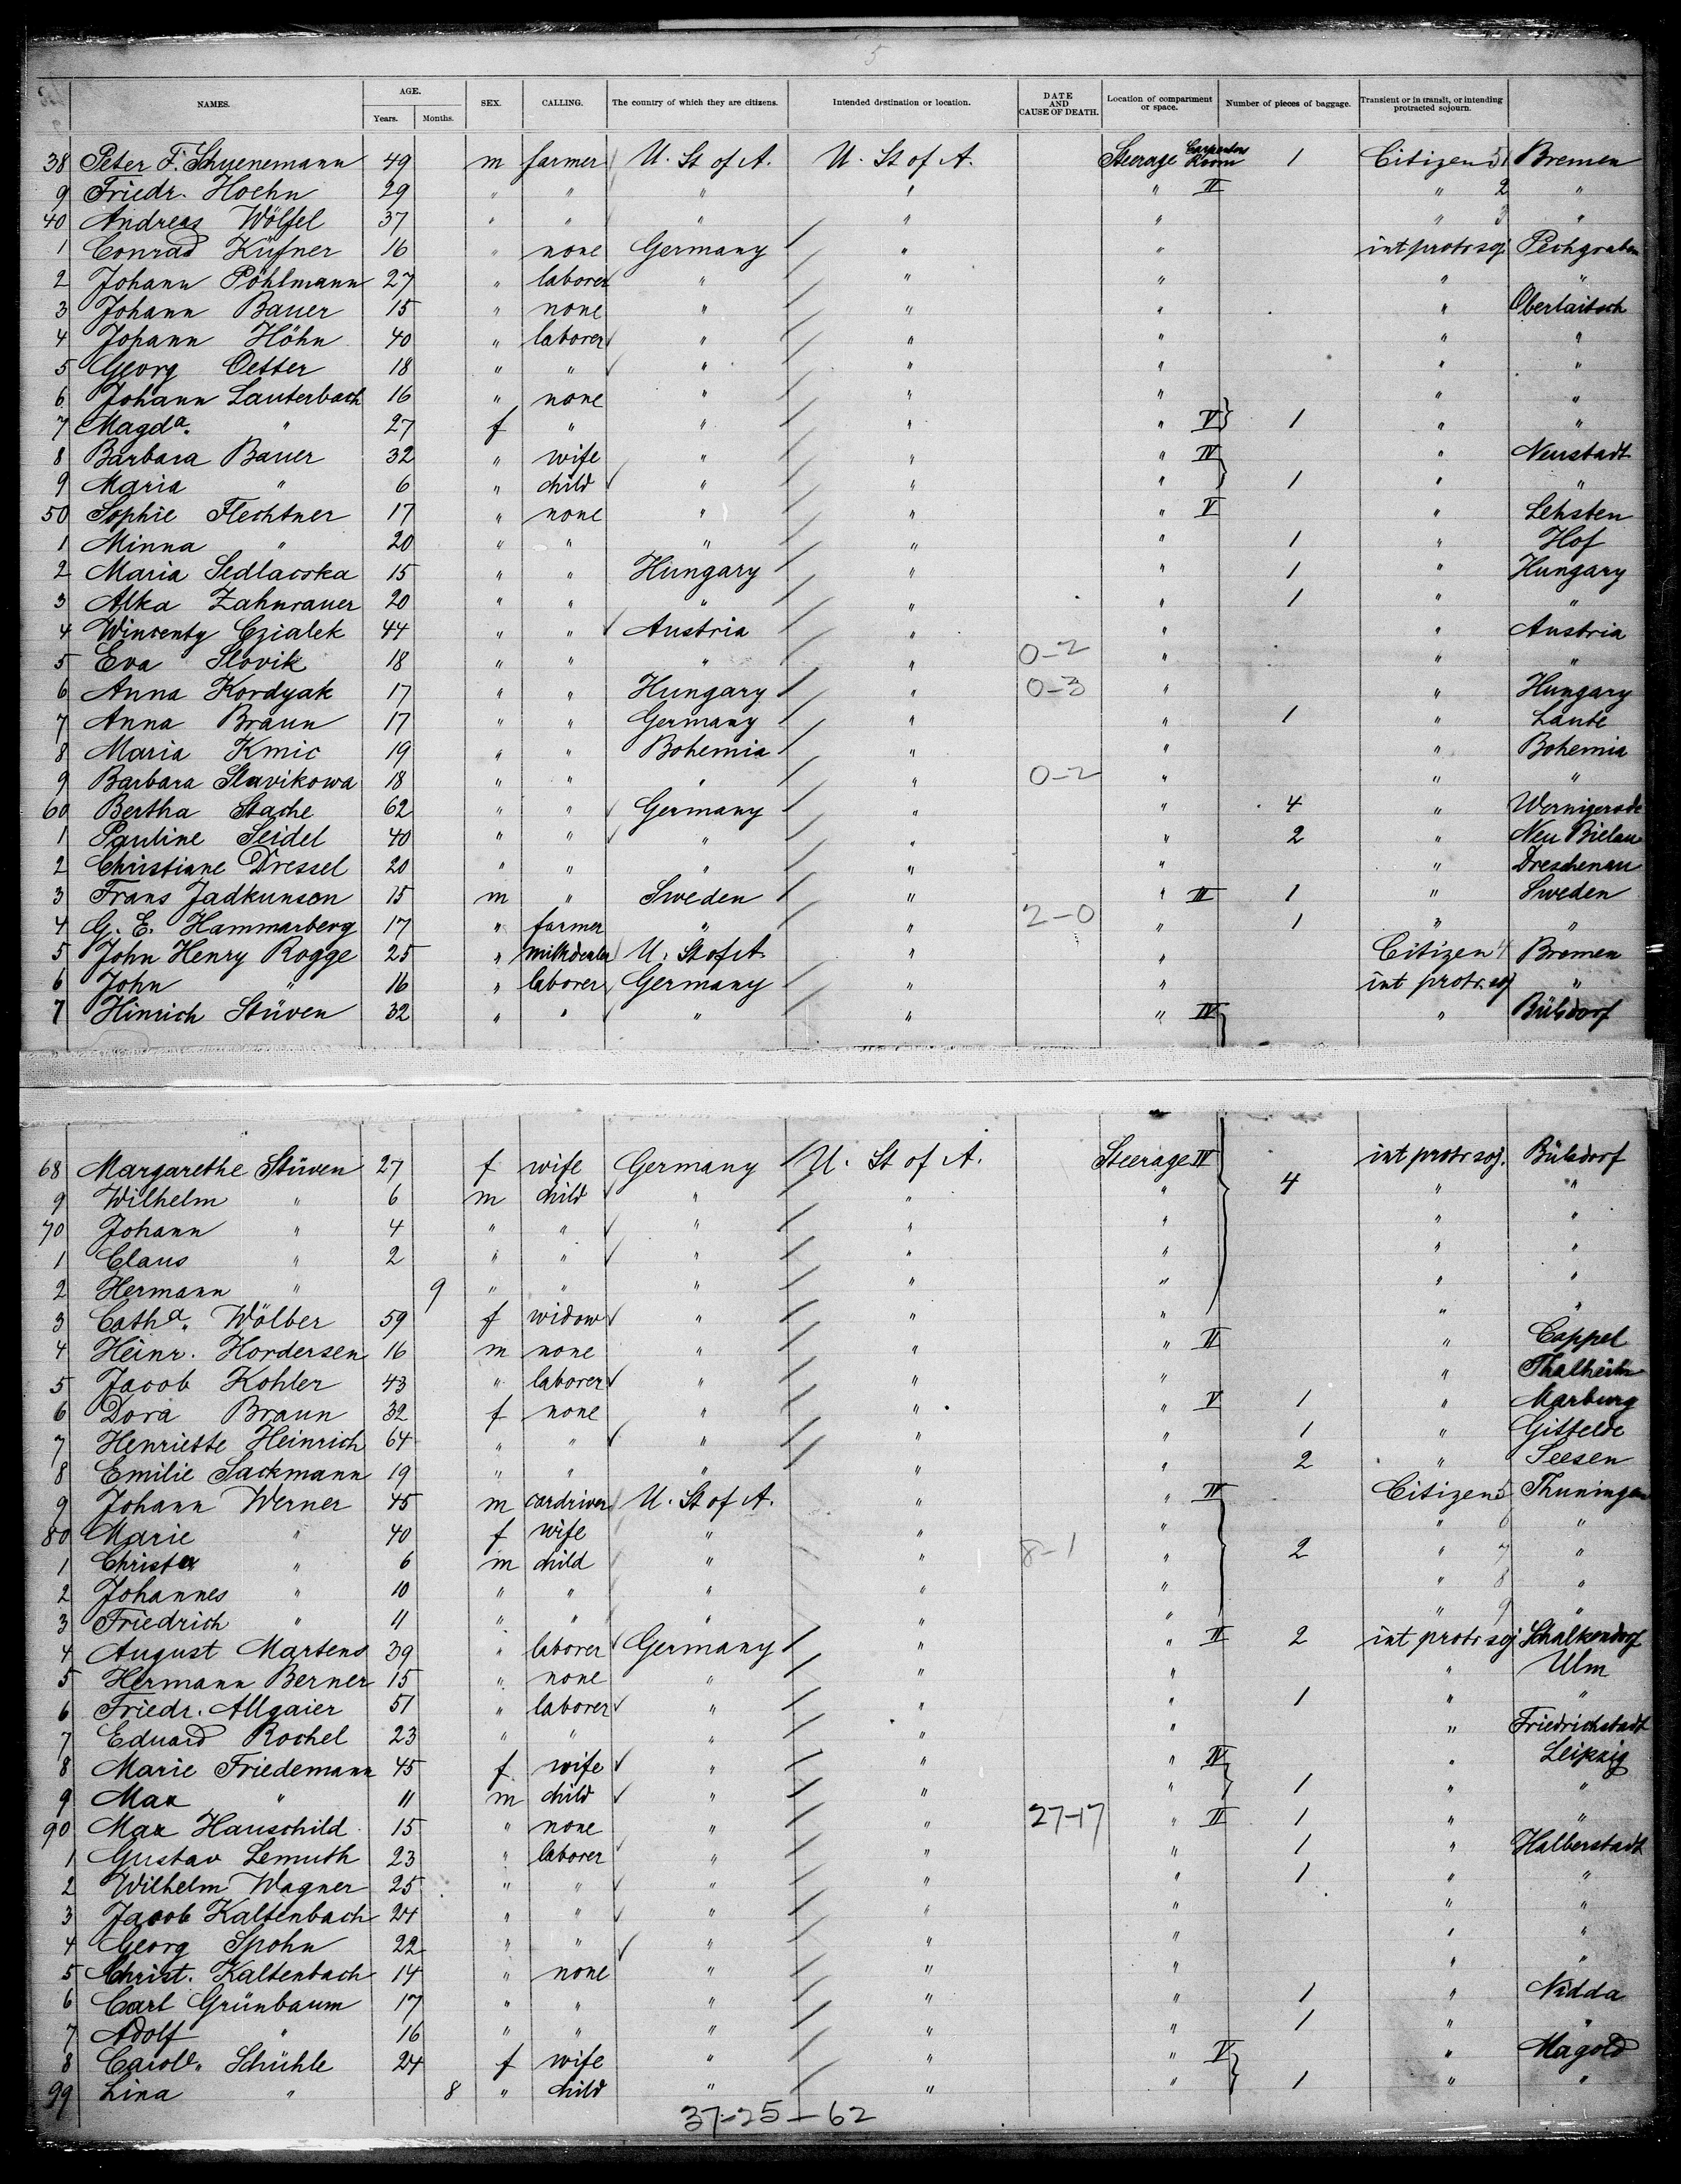 5
NAMES. AGE. Years. Months. SEX. CALLING. The country of which they are citizens. Intended destination or location. DATE AND CAUSE OF DEATH. Location of compartment or space. Number of pieces of baggage. Transient or in transit, or intending protracted sojourn.
38 Peter F. Schuenemann 49 m farmer U. St of A. U. St of A. Steerage Carpenters Room 1 Citizen 51 Bremen
9 Friedr. Hoehn 29 " " " " " II " 2 "
40 Andreas Wölfel 37 " " " " " " 3 "
1 Conrad Küfner 16 " none Germany " " int protr soj Pechgraben
2 Johann Pöhlmann 27 " laborer " " " " "
3 Johann Bauer 15 " none " " " " Oberlaitsch
4 Johann Höhn 40 " laborer " " " " "
5 Georg Oetter 18 " " " " " " "
6 Johann Lauterbach 16 " none " " " " "
7 Magda. " 27 f " " " " V 1 " "
8 Barbara Bauer 32 " wife " " " IV " Neustadt
9 Maria " 6 " child " " " 1 " "
50 Sophie Flechtner 17 " none " " " V " Lehsten
1 Minna " 20 " " " " " 1 " Hof
2 Maria Sedlacska 15 " " Hungary " " 1 " Hungary
3 Alka Zahnrauer 20 " " " " " 1 " "
4 Wincenty Czialek 44 " " Austria " " " Austria
5 Eva Slovik 18 " " " " 0-2 " " "
6 Anna Kordyak 17 " " Hungary " 0-3 " " Hungary
7 Anna Braun 17 " " Germany " " 1 " Laute
8 Maria Kmic 19 " " Bohemia " " " Bohemia
9 Barbara Slavikowa 18 " " " " 0-2 " " "
60 Bertha Stache 62 " " Germany " " 4 " Wernigerode
1 Pauline Seidel 40 " " " " " 2 " Neu Bielau
2 Christiane Dressel 20 " " " " " " Dreschenau
3 Frans Jadkunson 15 m " Sweden " " III 1 " Sweden
4 G. E. Hammarberg 17 " farmer " " 2-0 " 1 " "
5 John Henry Rogge 25 " milkdealer U. St of A " " Citizen 4 Bremen
6 John " 16 " laborer Germany " " int protr. soj "
7 Hinrich Stüven 32 " " " " " IV " Bülsdorf
68 Margarethe Stüven 27 f wife Germany U. St of A. Steerage IV int protr soj. Bülsdorf
9 Wilhelm " 6 m child " " " 4 " "
70 Johann " 4 " " " " " " "
1 Claus " 2 " " " " " " "
2 Hermann " 9 " " " " " " "
3 Catha. Wölber 59 f widow " " " " "
4 Heinr. Hordersen 16 m none " " " II " Cappel
5 Jacob Kohler 43 " laborer " " " " Thalheim
6 Dora Braun 32 f none " " " V 1 " Marburg
7 Henriette Heinrich 64 " " " " " 1 " Gittelde
8 Emilie Sackmann 19 " " " " " 2 " Seesen
9 Johann Werner 45 m cardriver U. St of A. " " IV Citizen 5 Thuningen
80 Marie " 40 f wife " " " " 6 "
1 Christer " 6 m child " " 8-1 " 2 " 7 "
2 Johannes " 10 " " " " " " 8 "
3 Friedrich " 11 " " " " " " 9 "
4 August Martens 39 " laborer Germany " " II 2 int protr soj Schalkendorf
5 Hermann Berner 15 " none " " " " Ulm
6 Friedr. Allgaier 51 " laborer " " " 1 " "
7 Eduard Rochel 23 " " " " " " Friedrichstadt
8 Marie Friedemann 45 f wife " " " IV " Leipzig
9 Max " 11 m child " " " 1 " "
90 Max Hauschild 15 " none " " 27-17 " II 1 " "
1 Gustav Lemuth 23 " laborer " " " 1 " Halberstadt
2 Wilhelm Wagner 25 " " " " " 1 " "
3 Jacob Kaltenbach 24 " " " " " " "
4 Georg Spohn 22 " " " " " " "
5 Christ. Kaltenbach 14 " none " " " " "
6 Carl Grünbaum 17 " " " " " 1 " Nidda
7 Adolf " 16 " " " " " 1 " "
8 Carole. Schühle 24 f wife " " " V " Magold
99 Lina " 8 " child " " " 1 " "
37-25-62